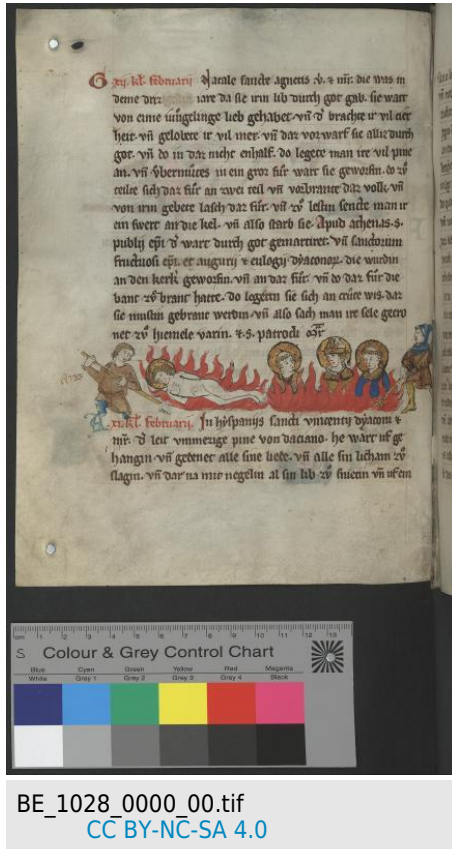 G xij. kł. februarij Natale sancte agnetis v̄. ⁊ mr̄. die was in
deme iare da sie irin lib durch got gab. sie wart
von eime iungelinge lieb gehabet. vn̄ brachte ir vil cier
heit. vn̄ gelobete ir vil mer. vn̄ daz vorwarf sie alliz durch
got. vn̄ do in daz nicht enhalf. do legete man ire vil pine
an. vn̄ in ein groz fur wart sie geworfin. do
teilte sich daz fur an zwei teil vn̄ vorbrante daz volk. vn̄
von irm gebete lasch daz fur. vn̄ lestin sencte man ir
ein swert an die kel. vn̄ also starb sie. Apud athenas. s.
publij ep̄i. wart durch got gemartiret. vn̄ sanctorum
fructuosi ep̄i. et augurij ⁊ eulogij dyaconor. die wurdin
an den kerk geworfin. vn̄ an daz fur. vn̄ do daz fur die
bant brant hatte. do legetin sie sich an cruce wis. daz
sie mustin gebrant werdin. vn̄ also sach man ire sele gecro
net hiemele varin. ⁊. s. patrocli mr̄
A xi. kł. februarij. In hyspanijs sancti vincentij dyaconi ⁊
mr̄. leit vnmezige pine von daciano. he wart uf ge
hangin. vn̄ getenet alle sine lede. vn̄ alle sin licham
slagin. vn̄ dar na mit negelin al sin lib snitin vn̄ uf ein
cm 1 2 3 4 5 6 7 8 9 10 11 12 13
S Colour & Grey Control Chart
Blue Cyan Green Yellow Red Magenta
White Grey 1 Grey 2 Grey 3 Grey 4 Black
BE_1028_0000_00.tif
CC BY-NC-SA 4.0